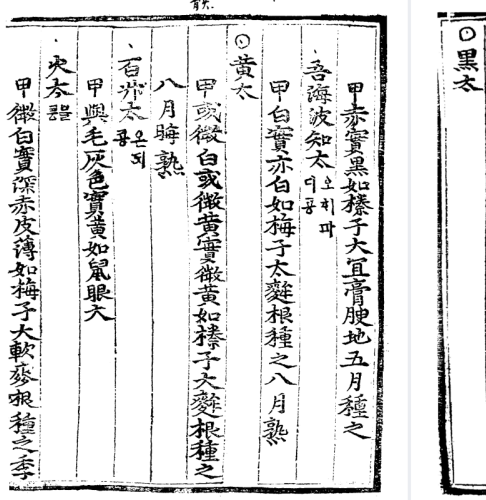 ◎黑太
甲赤實黑如榛子大宜膏腴地五月種之
吾海波知太 오히파디콩
甲白實亦白如梅子太麰根種之八月熟
◎黃太
甲或微白或微黃實微黃如榛子大麰根種之
八月晦熟
百升太 온되콩
甲與毛灰色實黃如鼠眼大
火太 블콩
甲微白實深赤皮薄如梅子大軟麥根種之季